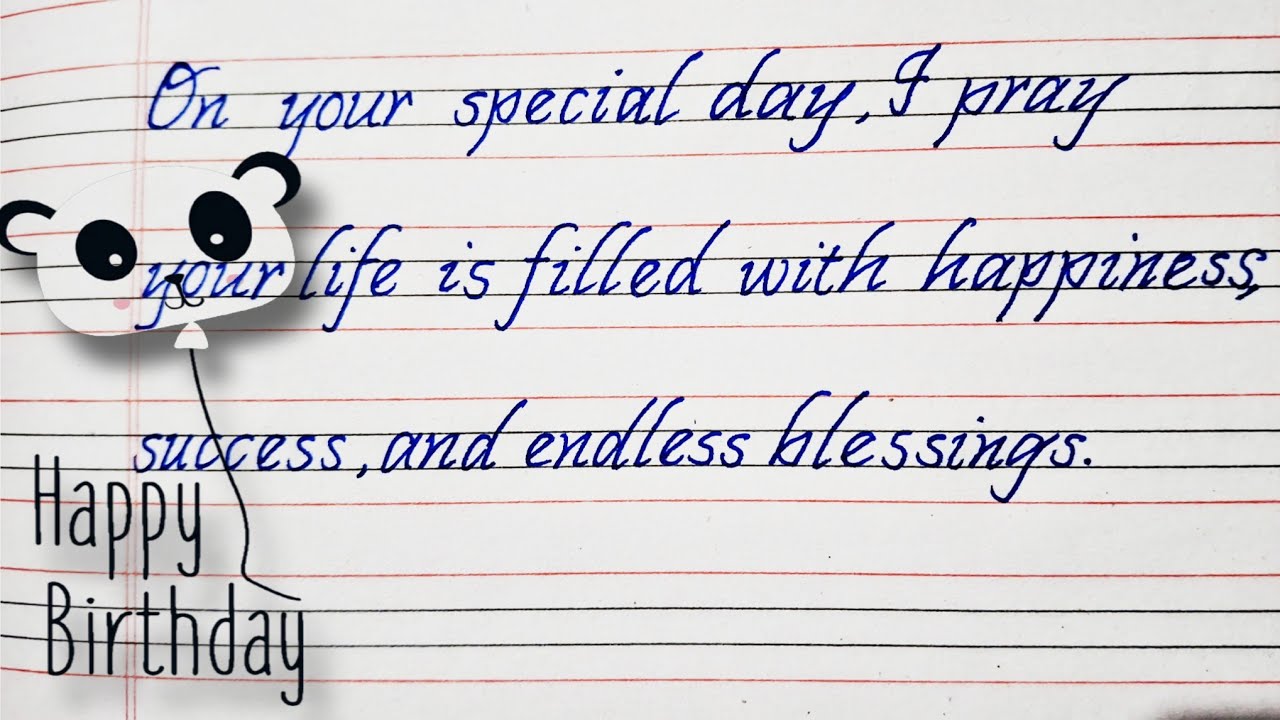 On your special day, I pray
your life is filled with happiness,
success, and endless blessings.
Happy
Birthday